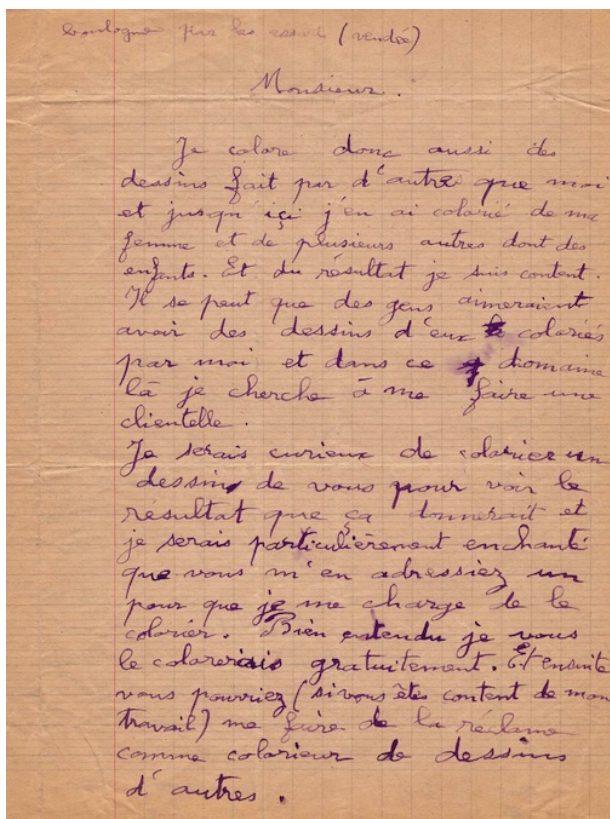 boulogne par les essarts (vendée)
Monsieur.
Je colore donc aussi des
dessins fait par d'autre que moi
et jusqu'içi j'en ai colorié de ma
femme et de plusieurs autres dont des
enfants. Et du résultat je suis content.
Il se peut que des gens aimeraient
avoir des dessins d'eux coloriés
par moi et dans ce domaine
là je cherche à me faire une
clientelle.
Je serais curieux de colorier un
dessin de vous pour voir le
résultat que ça donnerait et
je serais particulièrement enchanté
que vous m'en adressiez un
pour que je me charge de le
colorier. Bien entendu je vous
le colorerais gratuitement. Et ensuite
vous pourriez (si vous êtes content de mon
travail) me faire de la réclame
comme colorieur de dessins
d'autres.